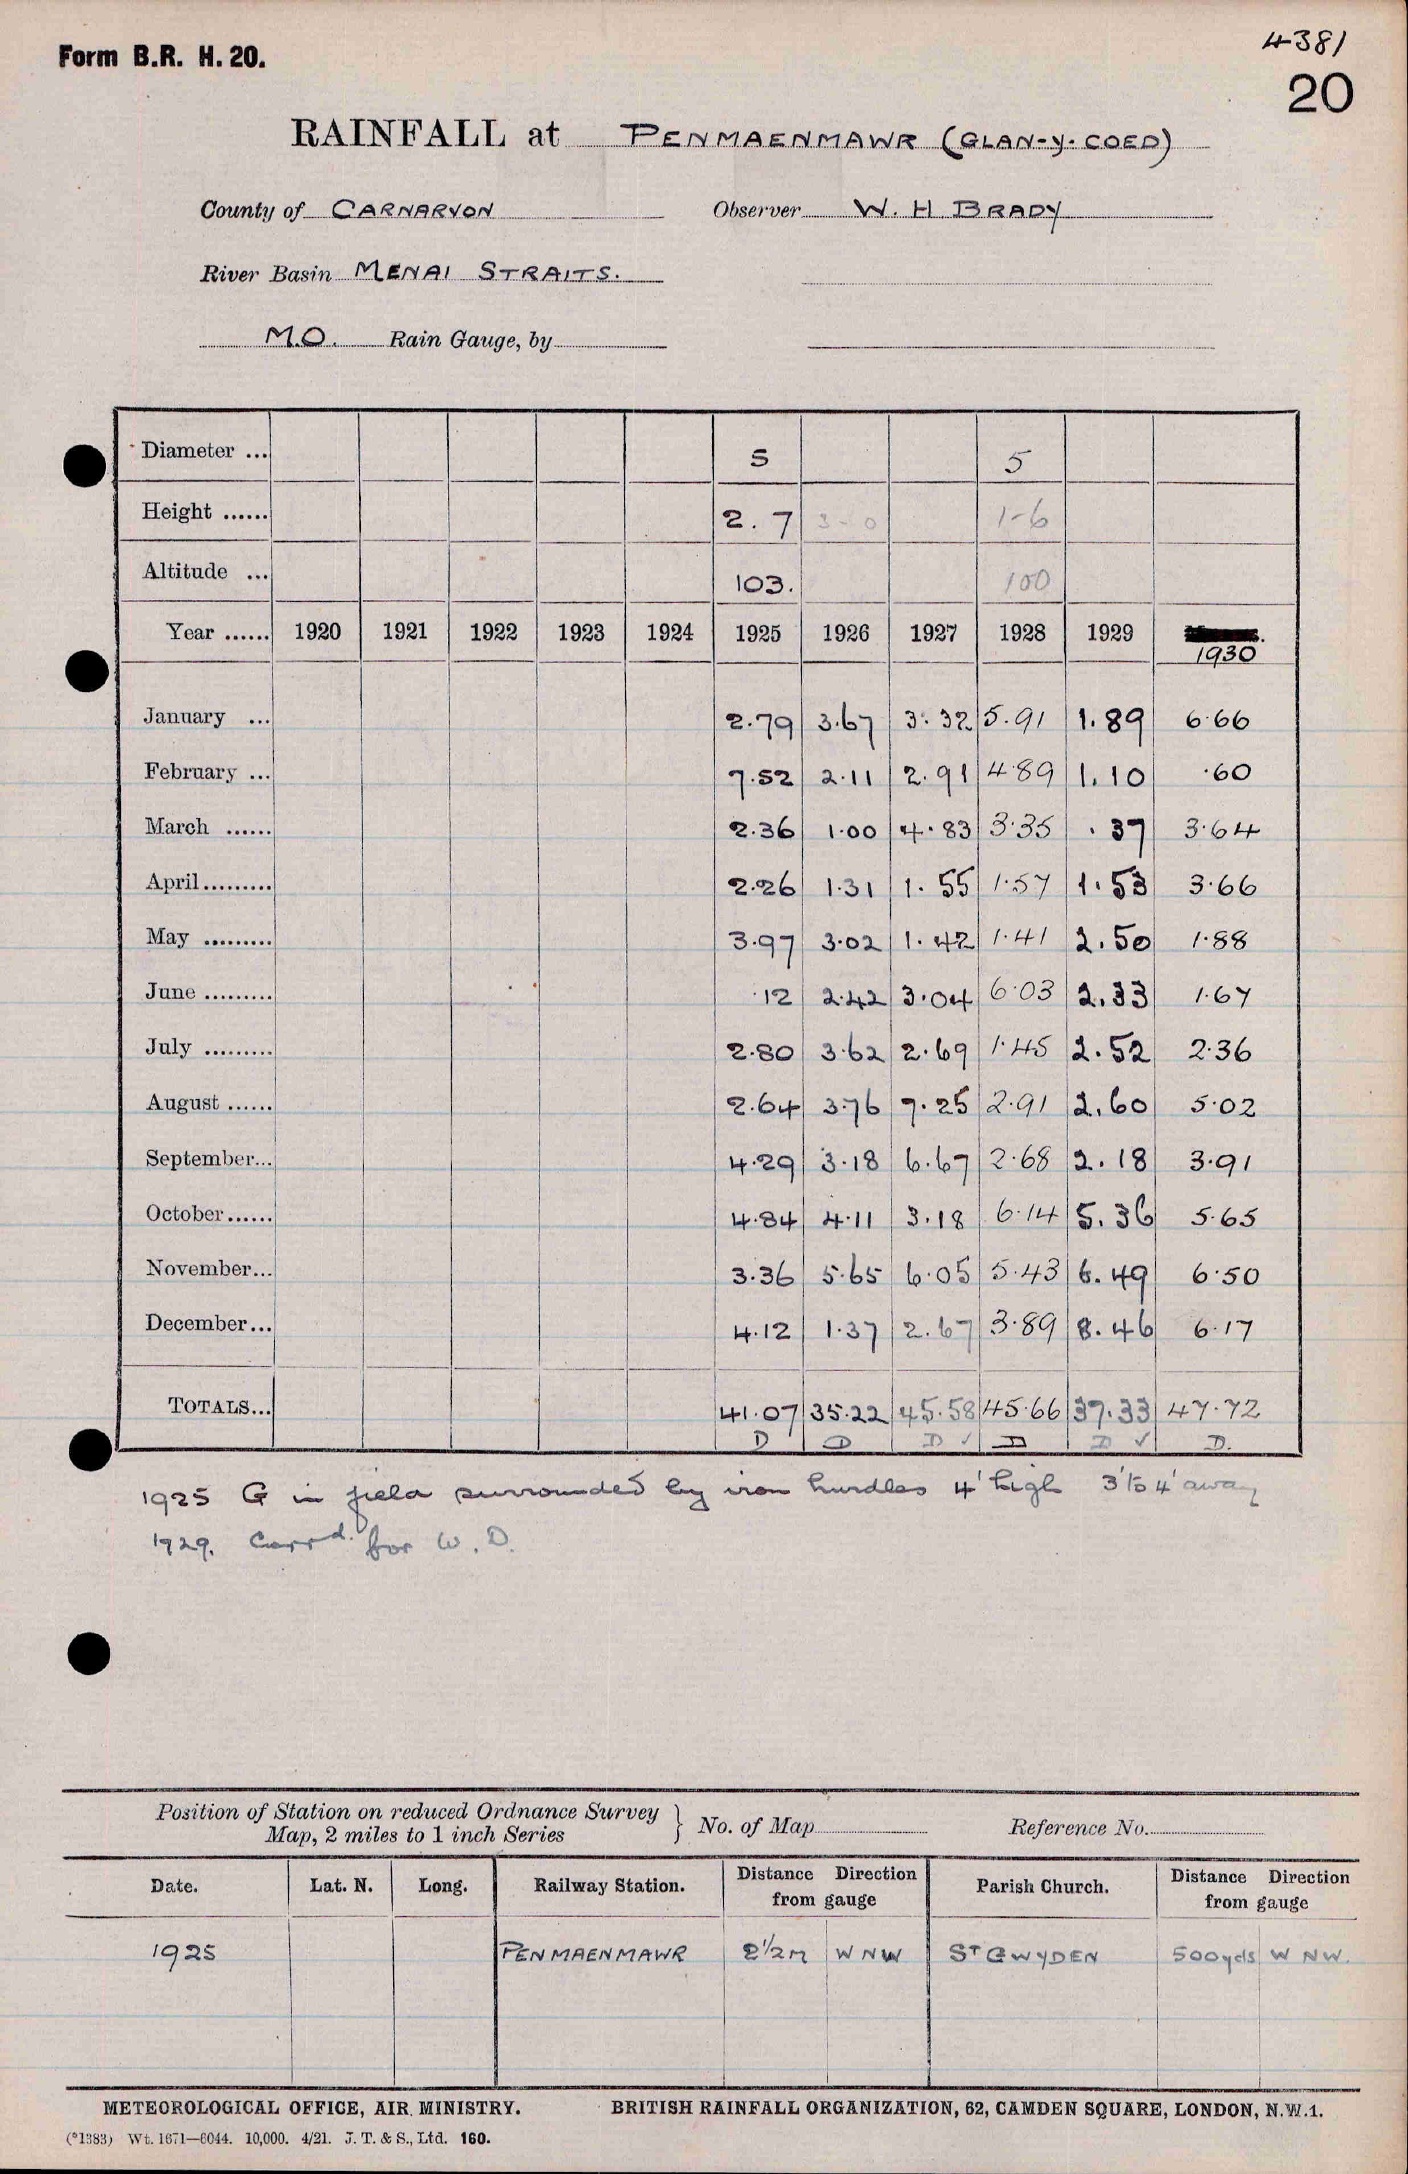 Form B.R. H. 20.
4381
20
RAINFALL at PENMAENMAWR (GLAN-Y-COED)
County of CARNARVON Observer W. H BRADY
River Basin MENAI STRAITS.
M.O. Rain Gauge, by
Diameter ... 5 5
Height ...... 2. 7 3-0 1-6
Altitude ... 103. 100
Year ...... 1920 1921 1922 1923 1924 1925 1926 1927 1928 1929 1930
January ... 2.79 3.67 3.32 5.91 1.89 6.66
February ... 7.52 2.11 2.91 4.89 1.10 .60
March ...... 2.36 1.00 4.83 3.35 .37 3.64
April ......... 2.26 1.31 1.55 1.57 1.53 3.66
May ......... 3.97 3.02 1.42 1.41 2.50 1.88
June ......... .12 2.42 3.04 6.03 2.33 1.67
July ......... 2.80 3.62 2.69 1.45 2.52 2.36
August ...... 2.64 3.76 7.25 2.91 2.60 5.02
September... 4.29 3.18 6.67 2.68 2.18 3.91
October ...... 4.84 4.11 3.18 6.14 5.36 5.65
November... 3.36 5.65 6.05 5.43 6.49 6.50
December... 4.12 1.37 2.67 3.89 8.46 6.17
TOTALS... 41.07 35.22 45.58 45.66 37.33 47.72
D D D ✓ D D ✓ D.
1925 G in field surrounded by iron hurdles 4' high 3' to 4' away
1929. Corrd. for W. D.
Position of Station on reduced Ordnance Survey } No. of Map Reference No.
Map, 2 miles to 1 inch Series
Date. Lat. N. Long. Railway Station. Distance Direction from gauge Parish Church. Distance Direction from gauge
1925 PENMAENMAWR 2½m WNW ST GWYDEN 500yds W NW.
METEOROLOGICAL OFFICE, AIR MINISTRY. BRITISH RAINFALL ORGANIZATION, 62, CAMDEN SQUARE, LONDON, N.W.1.
(*1383) Wt. 1671—6044. 10,000. 4/21. J. T. & S., Ltd. 160.